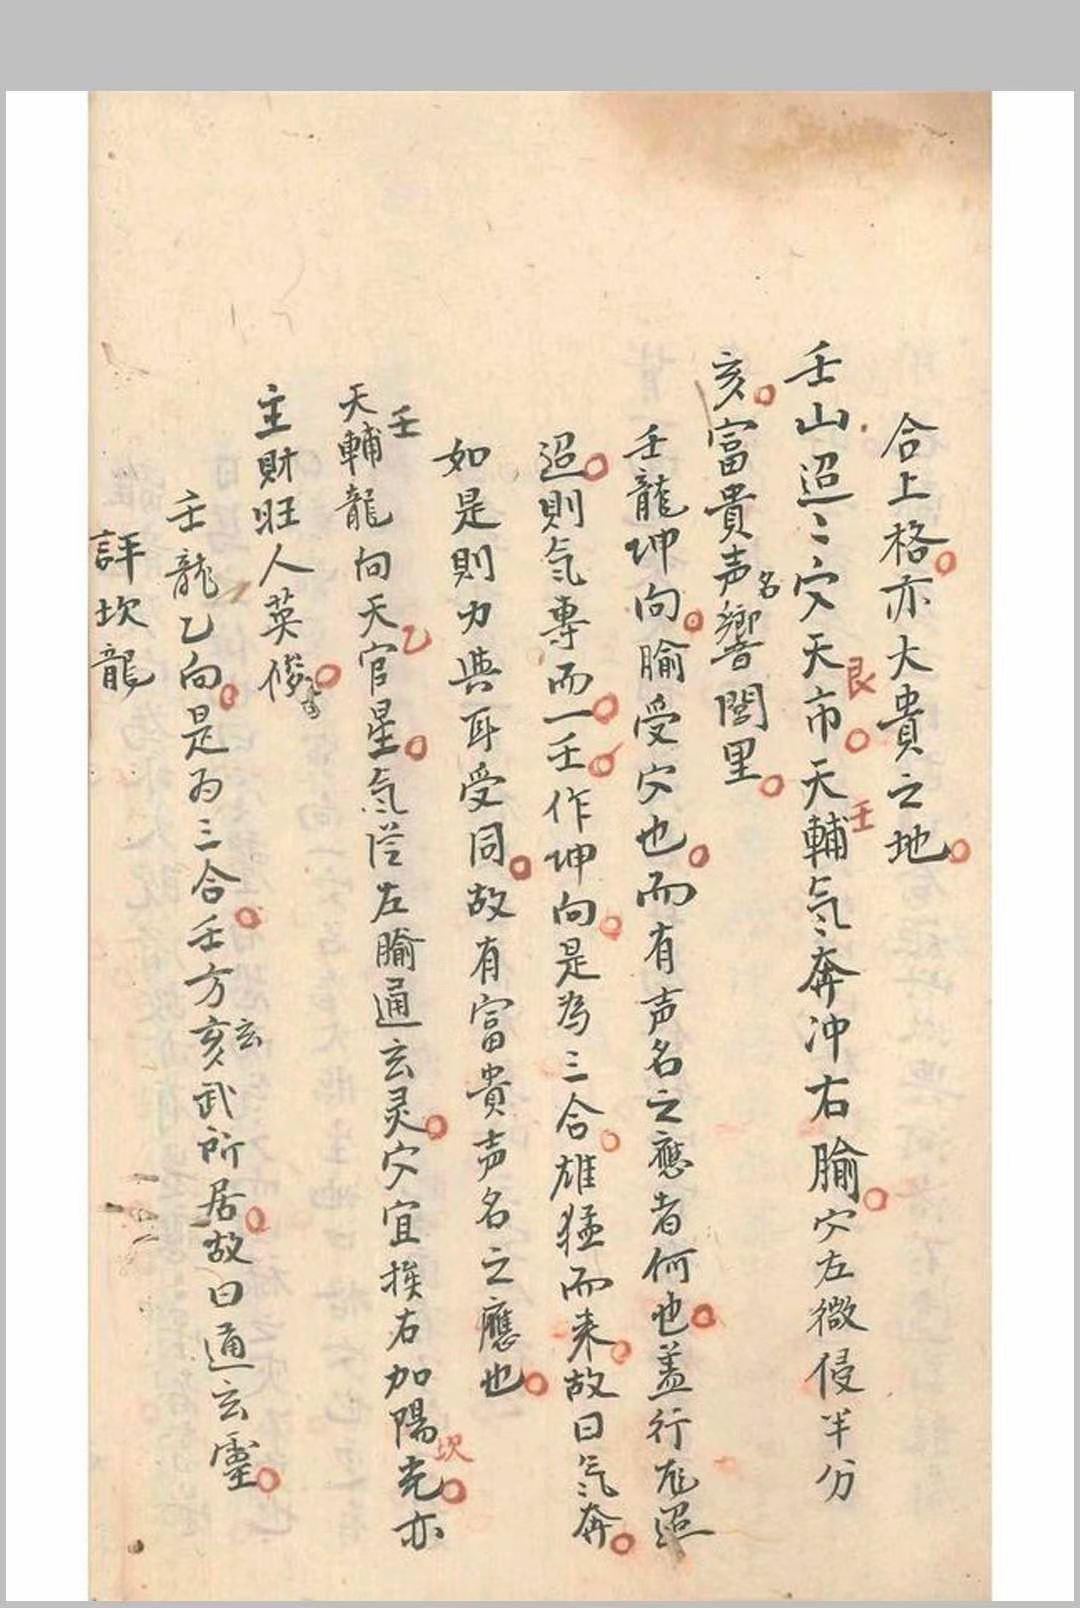 合上格亦大貴之地
壬山迢〻穴天市艮天輔壬氣奔冲右腧穴左微侵半分
亥富貴声名響閭里
壬龍坤向腧受穴也而有声名之應者何也盖行龙迢
迢則氣專而一壬作坤向是為三合雄猛而来故曰氣奔
如是則力與耳受同故有富貴声名之應也
壬
天輔龍向天官星乙氣從左腧通玄灵穴宜挨右加陽光坎亦
主財旺人英俊
壬龍乙向是为三合壬方亥玄武所居故曰通玄靈
評坎龍